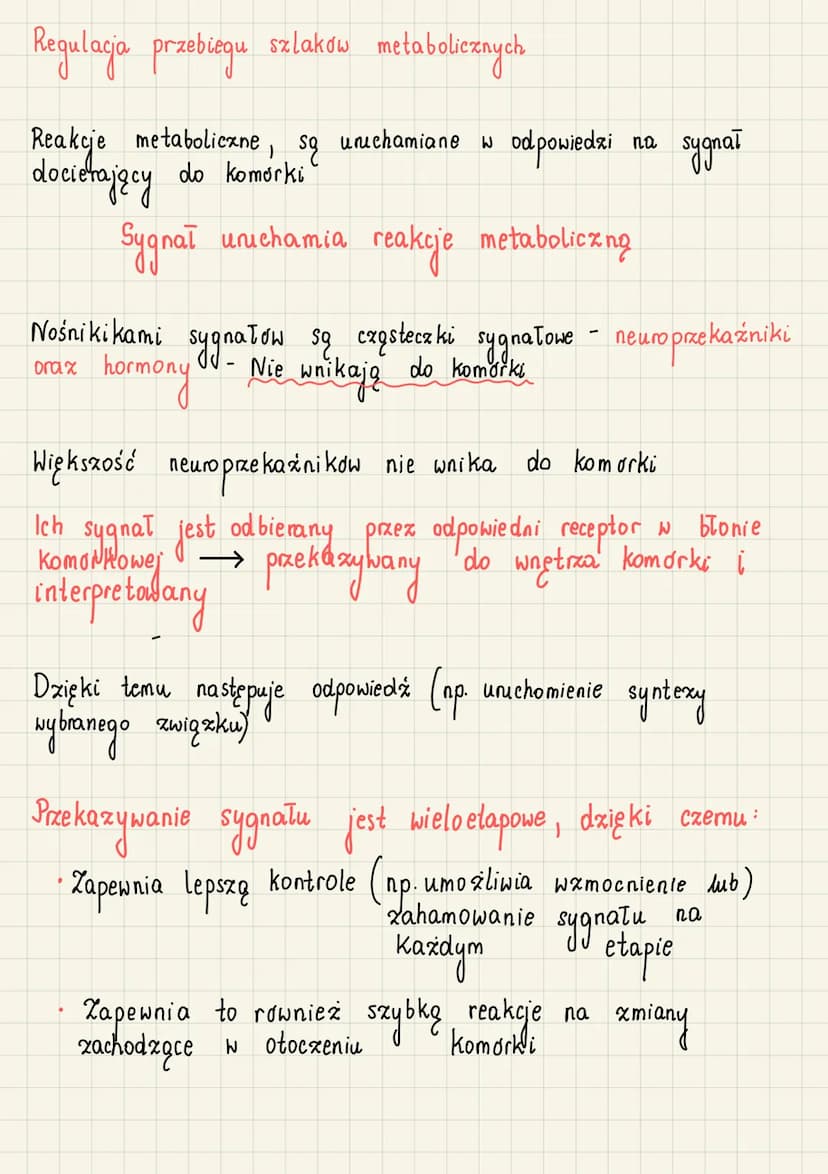 Regulacja przebiegu szlaków metabolicznych
Reakcje metaboliczne, są uruchamiane w odpowiedzi na sygnał
docierający do komórki
Sygnał uruchamia reakcje metaboliczną
Nośnikikami sygnałów są cząsteczki sygnałowe - neuroprzekaźniki
oraz hormony - Nie wnikają do komórki
Większość neuroprzekaźników nie wnika do komórki
Ich sygnał jest odbierany przez odpowiedni receptor w błonie
komórkowej → przekazywany do wnętrza komórki i
interpretowany
-
Dzięki temu następuje odpowiedź (np. uruchomienie syntezy
wybranego związku)
Przekazywanie sygnału jest wieloetapowe, dzięki czemu:
· Zapewnia lepszą kontrole (np. umożliwia wzmocnienie lub)
zahamowanie sygnału na
każdym etapie
· Zapewnia to również szybką reakcje na zmiany
zachodzące w otoczeniu komórki